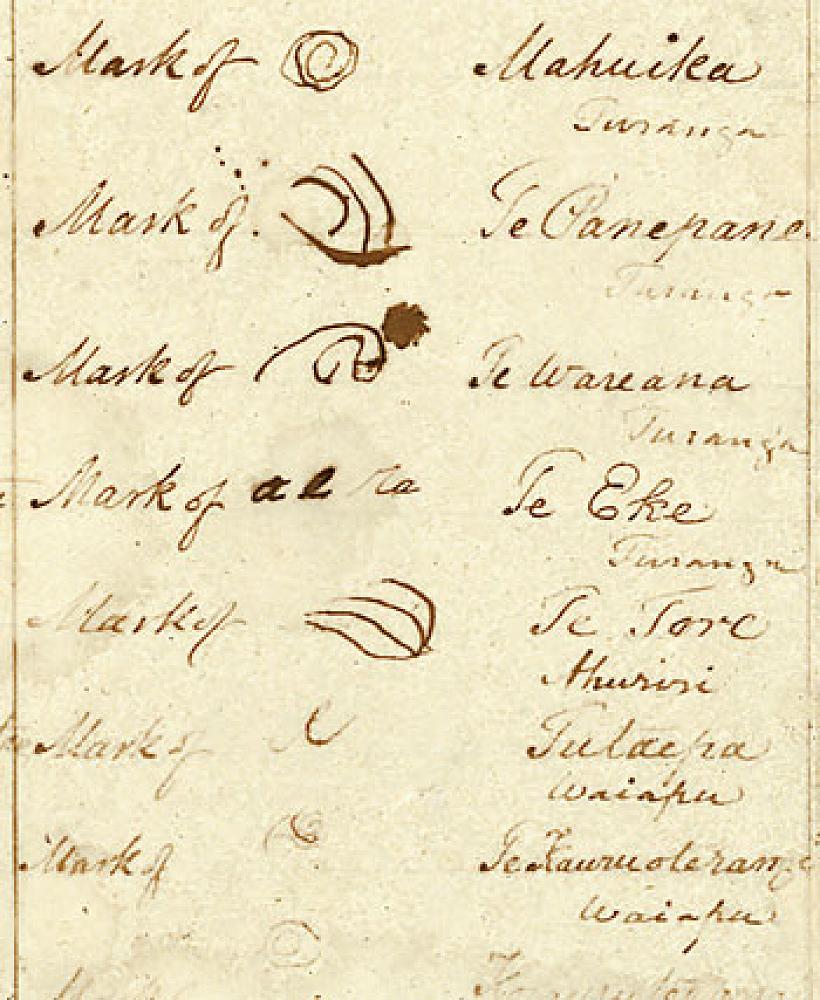 Mark of Mahuika
Turanga
Mark of Te Panepane
Turanga
Mark of Te Wareana
Turanga
Mark of a e Ra Te Eke
Turanga
Mark of Te Tore
Ahuriri
Mark of Tutaepa
Waiapu
Mark of Te Kauruoterangi
Waiapu
Mark